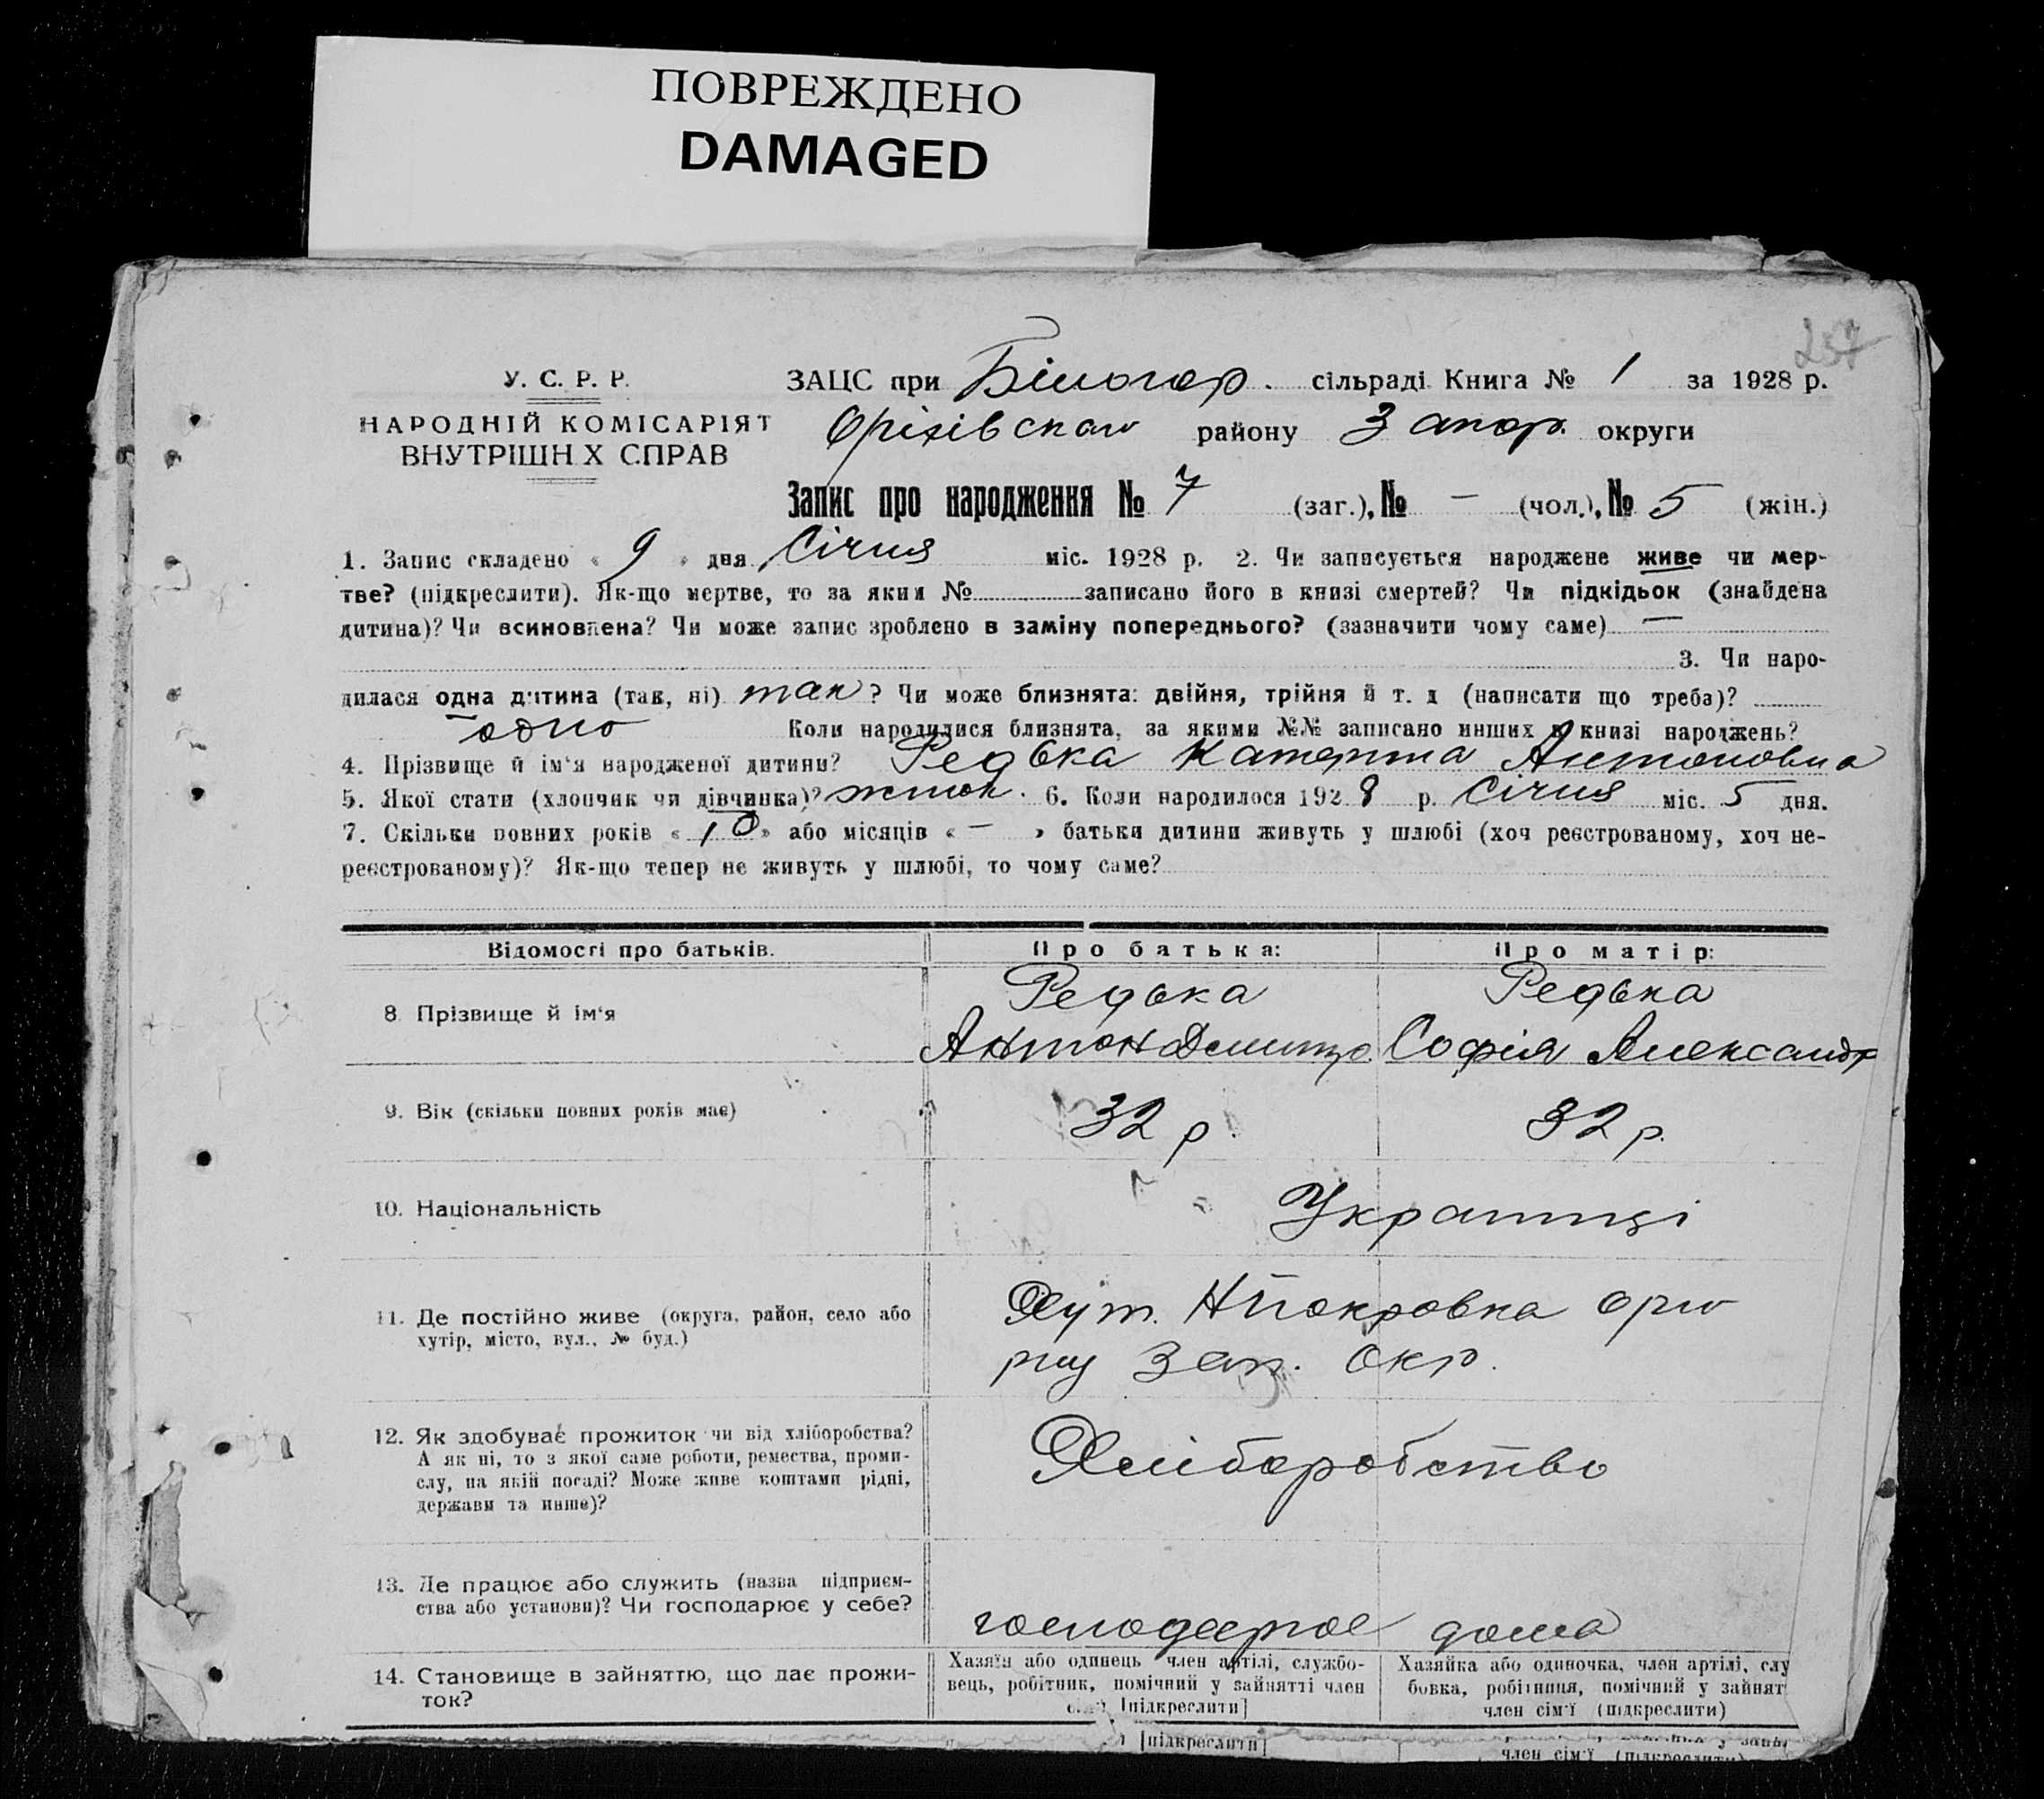 ПОВРЕЖДЕНО
DAMAGED
257
У. С. Р. Р.
НАРОДНІЙ КОМІСАРІЯТ
ВНУТРІШН Х СПРАВ
ЗАЦС при Білогор. сільраді Книга № 1 за 1928 р.
Оріхівськ району Запор. округи
Запис про народження № 7 (заг.), № — (чол.), № 5 (жін.)
1. Запис складено « 9 » дня Січня міс. 1928 р. 2. Чи записується народжене живе чи мер-
тве? (підкреслити). Як-що мертве, то за яким № записано його в книзі смертей? Чи підкідьок (знайдена
дитина)? Чи всиновлена? Чи може запис зроблено в заміну попереднього? (зазначити чому саме) —
3. Чи наро-
дилася одна дитина (так, ні) так? Чи може близнята: двійня, трійня й т. д (написати що треба)?
одно Коли народилися близнята, за якими №№ записано инших в книзі народжень?
4. Прізвище й ім'я народженої дитини? Редька Катерина Антоновна
5. Якої стати (хлопчик чи дівчинка)? жінок. 6. Коли народилося 1928 р. Січня міс. 5 дня.
7. Скільки повних років « 10 » або місяців « — » батьки дитини живуть у шлюбі (хоч реєстрованому, хоч не-
реєстрованому)? Як-що тепер не живуть у шлюбі, то чому саме?
Відомості про батьків. Про батька: Про матір:
8. Прізвище й ім'я Редька Редька
Антон Дмитро Софія Александр
9. Вік (скільки повних років має) 32 р. 32 р.
10. Національність Українці
11. Де постійно живе (округа, район, село або
хутір, місто, вул., № буд.)
Хут. НПокровка Оріх
рну Зап. Окр.
12. Як здобуває прожиток чи від хліборобства?
А як ні, то з якої саме роботи, ремества, проми-
слу, на якій посаді? Може живе коштами рідні,
держави та инше)?
Хліборобство
13. Де працює або служить (назва підприєм-
ства або установи)? Чи господарює у себе?
господарює дома
14. Становище в зайняттю, що дає прожи-
ток?
Хазяїн або одинець член артілі, службо-
вець, робітник, помічний у зайнятті член
сім'ї [підкреслити]
Хазяйка або одиночка, член артілі, слу
бовка, робітниця, помічний у зайнят
член сім'ї (підкреслити)
[підкреслити]
член сім'ї (підкреслити)